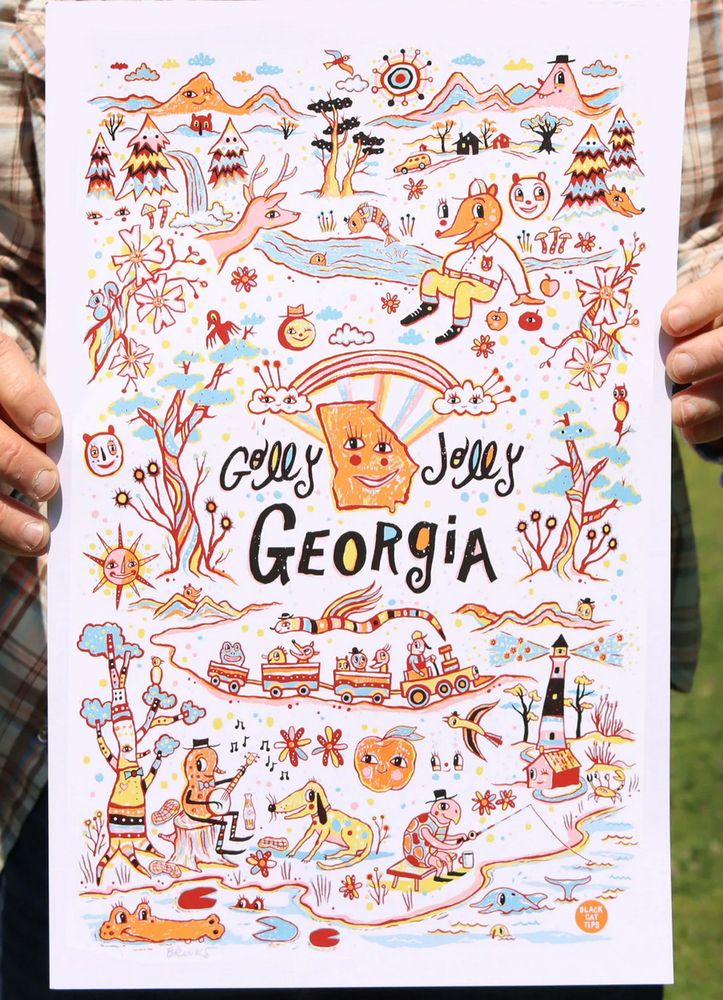 Golly Jolly
GEORGiA
BLACK
CAT
TIPS
BROOKS